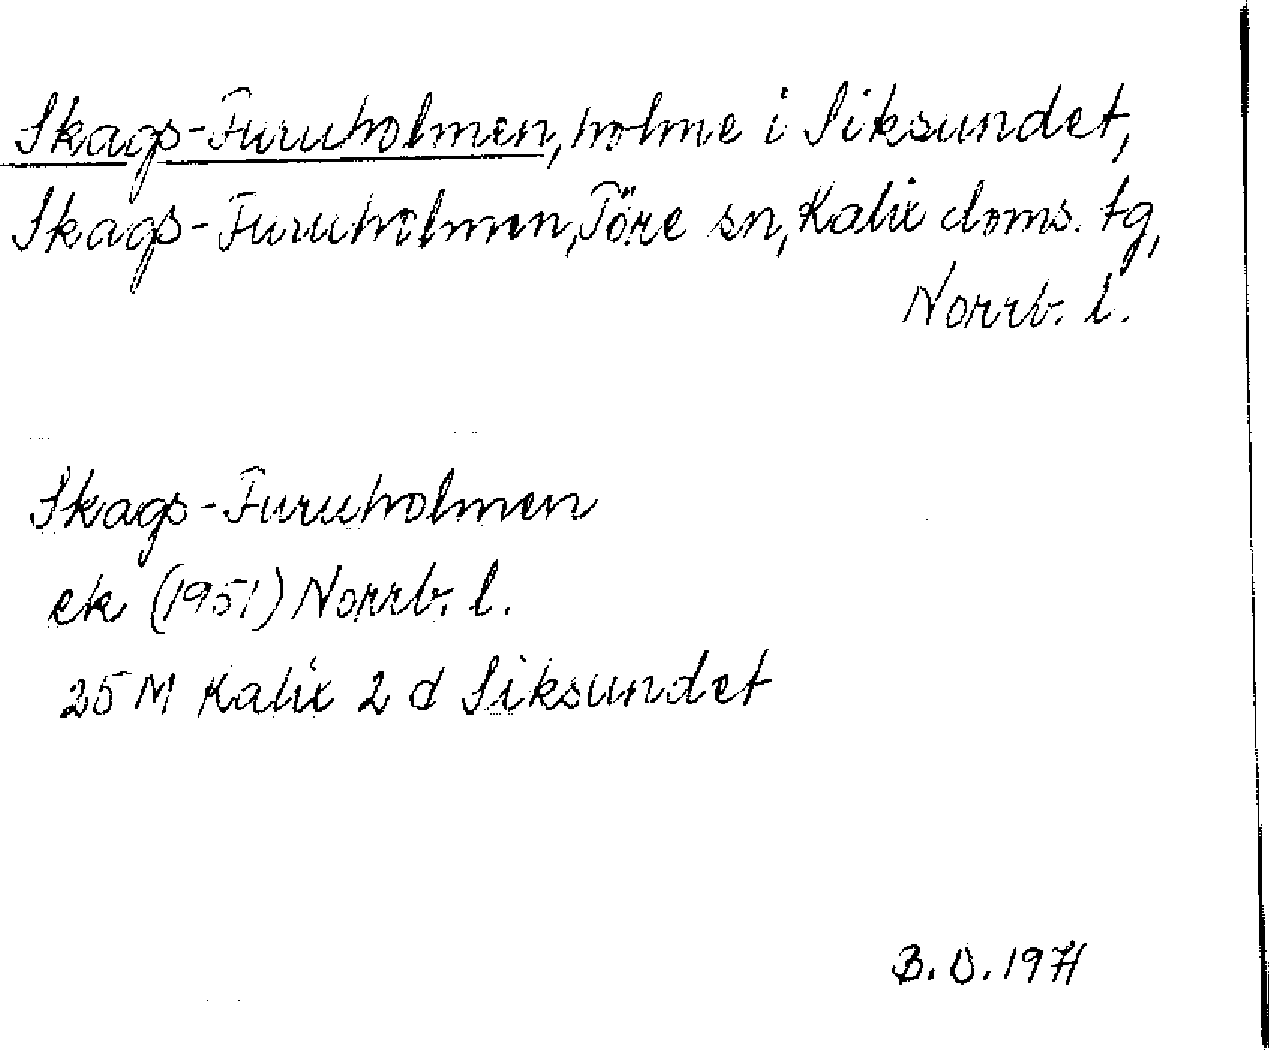 Skags-Furuholmen, holme i Siksundet,
Skags-Furuholmen, Töre sn, Kalix doms. tg,
Norrb. l.
Skags-Furuholmen
ek (1951) Norrb. l.
25 M Kalix 2 d Siksundet
B. O. 1971